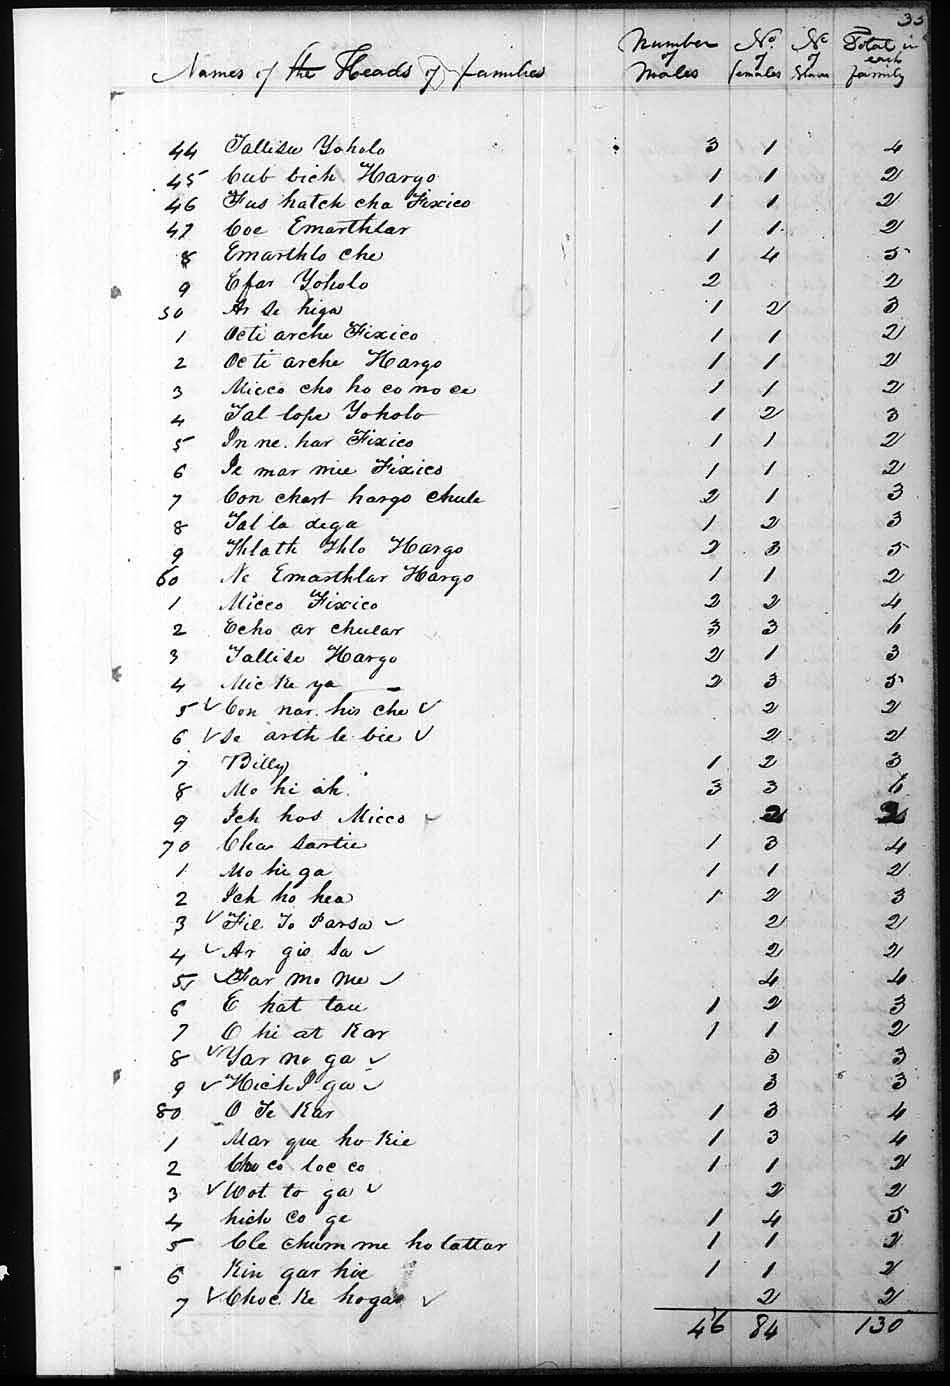 35
Names of the Heads of families Number of Males No of females No of Slaves Total in each family
44 Tallisee Yoholo 3 1 4
45 Cub bich Hargo 1 1 2
46 Fus hatch cha Fixico 1 1 2
47 Coe Emarthlar 1 1 2
8 Emarthlo che 1 4 5
9 Efar Yoholo 2 2
50 Ar se higa 1 2 3
1 Octi arche Fixico 1 1 2
2 Octi arche Hargo 1 1 2
3 Micco cho ho co no ce 1 1 2
4 Tal lope Yoholo 1 2 3
5 In ne. har Fixico 1 1 2
6 Is mar mie Fixico 1 1 2
7 Con chart hargo chule 2 1 3
8 Tal la dega 1 2 3
9 Thlath Thlo Hargo 2 3 5
60 Ne Emarthlar Hargo 1 1 2
1 Micco Fixico 2 2 4
2 Echo ar chular 3 3 6
3 Tallise Hargo 2 1 3
4 Mic Ke ya 2 3 5
5 Con nar. his che 2 2
6 Se arth le bie 2 2
7 Billy 1 2 3
8 Mo hi ah 3 3 6
9 Ich hos Micco 2 2
70 Cha sartie 1 3 4
1 Mo hi ga 1 1 2
2 Ich ho hea 1 2 3
3 Fil To Parsa 2 2
4 Ar gio sa 2 2
5 Far mo me 4 4
6 E hat tau 1 2 3
7 O hi at Kar 1 1 2
8 Yar no ga 3 3
9 Hich I ga 3 3
80 O Te Kar 1 3 4
1 Mar que ho Kie 1 3 4
2 Cho co loc co 1 1 2
3 Wot to ga 2 2
4 hich co ge 1 4 5
5 Cle chum me ho tattar 1 1 2
6 Kin gar hie 1 1 2
7 Choc. Ke hogar 2 2
46 84 130